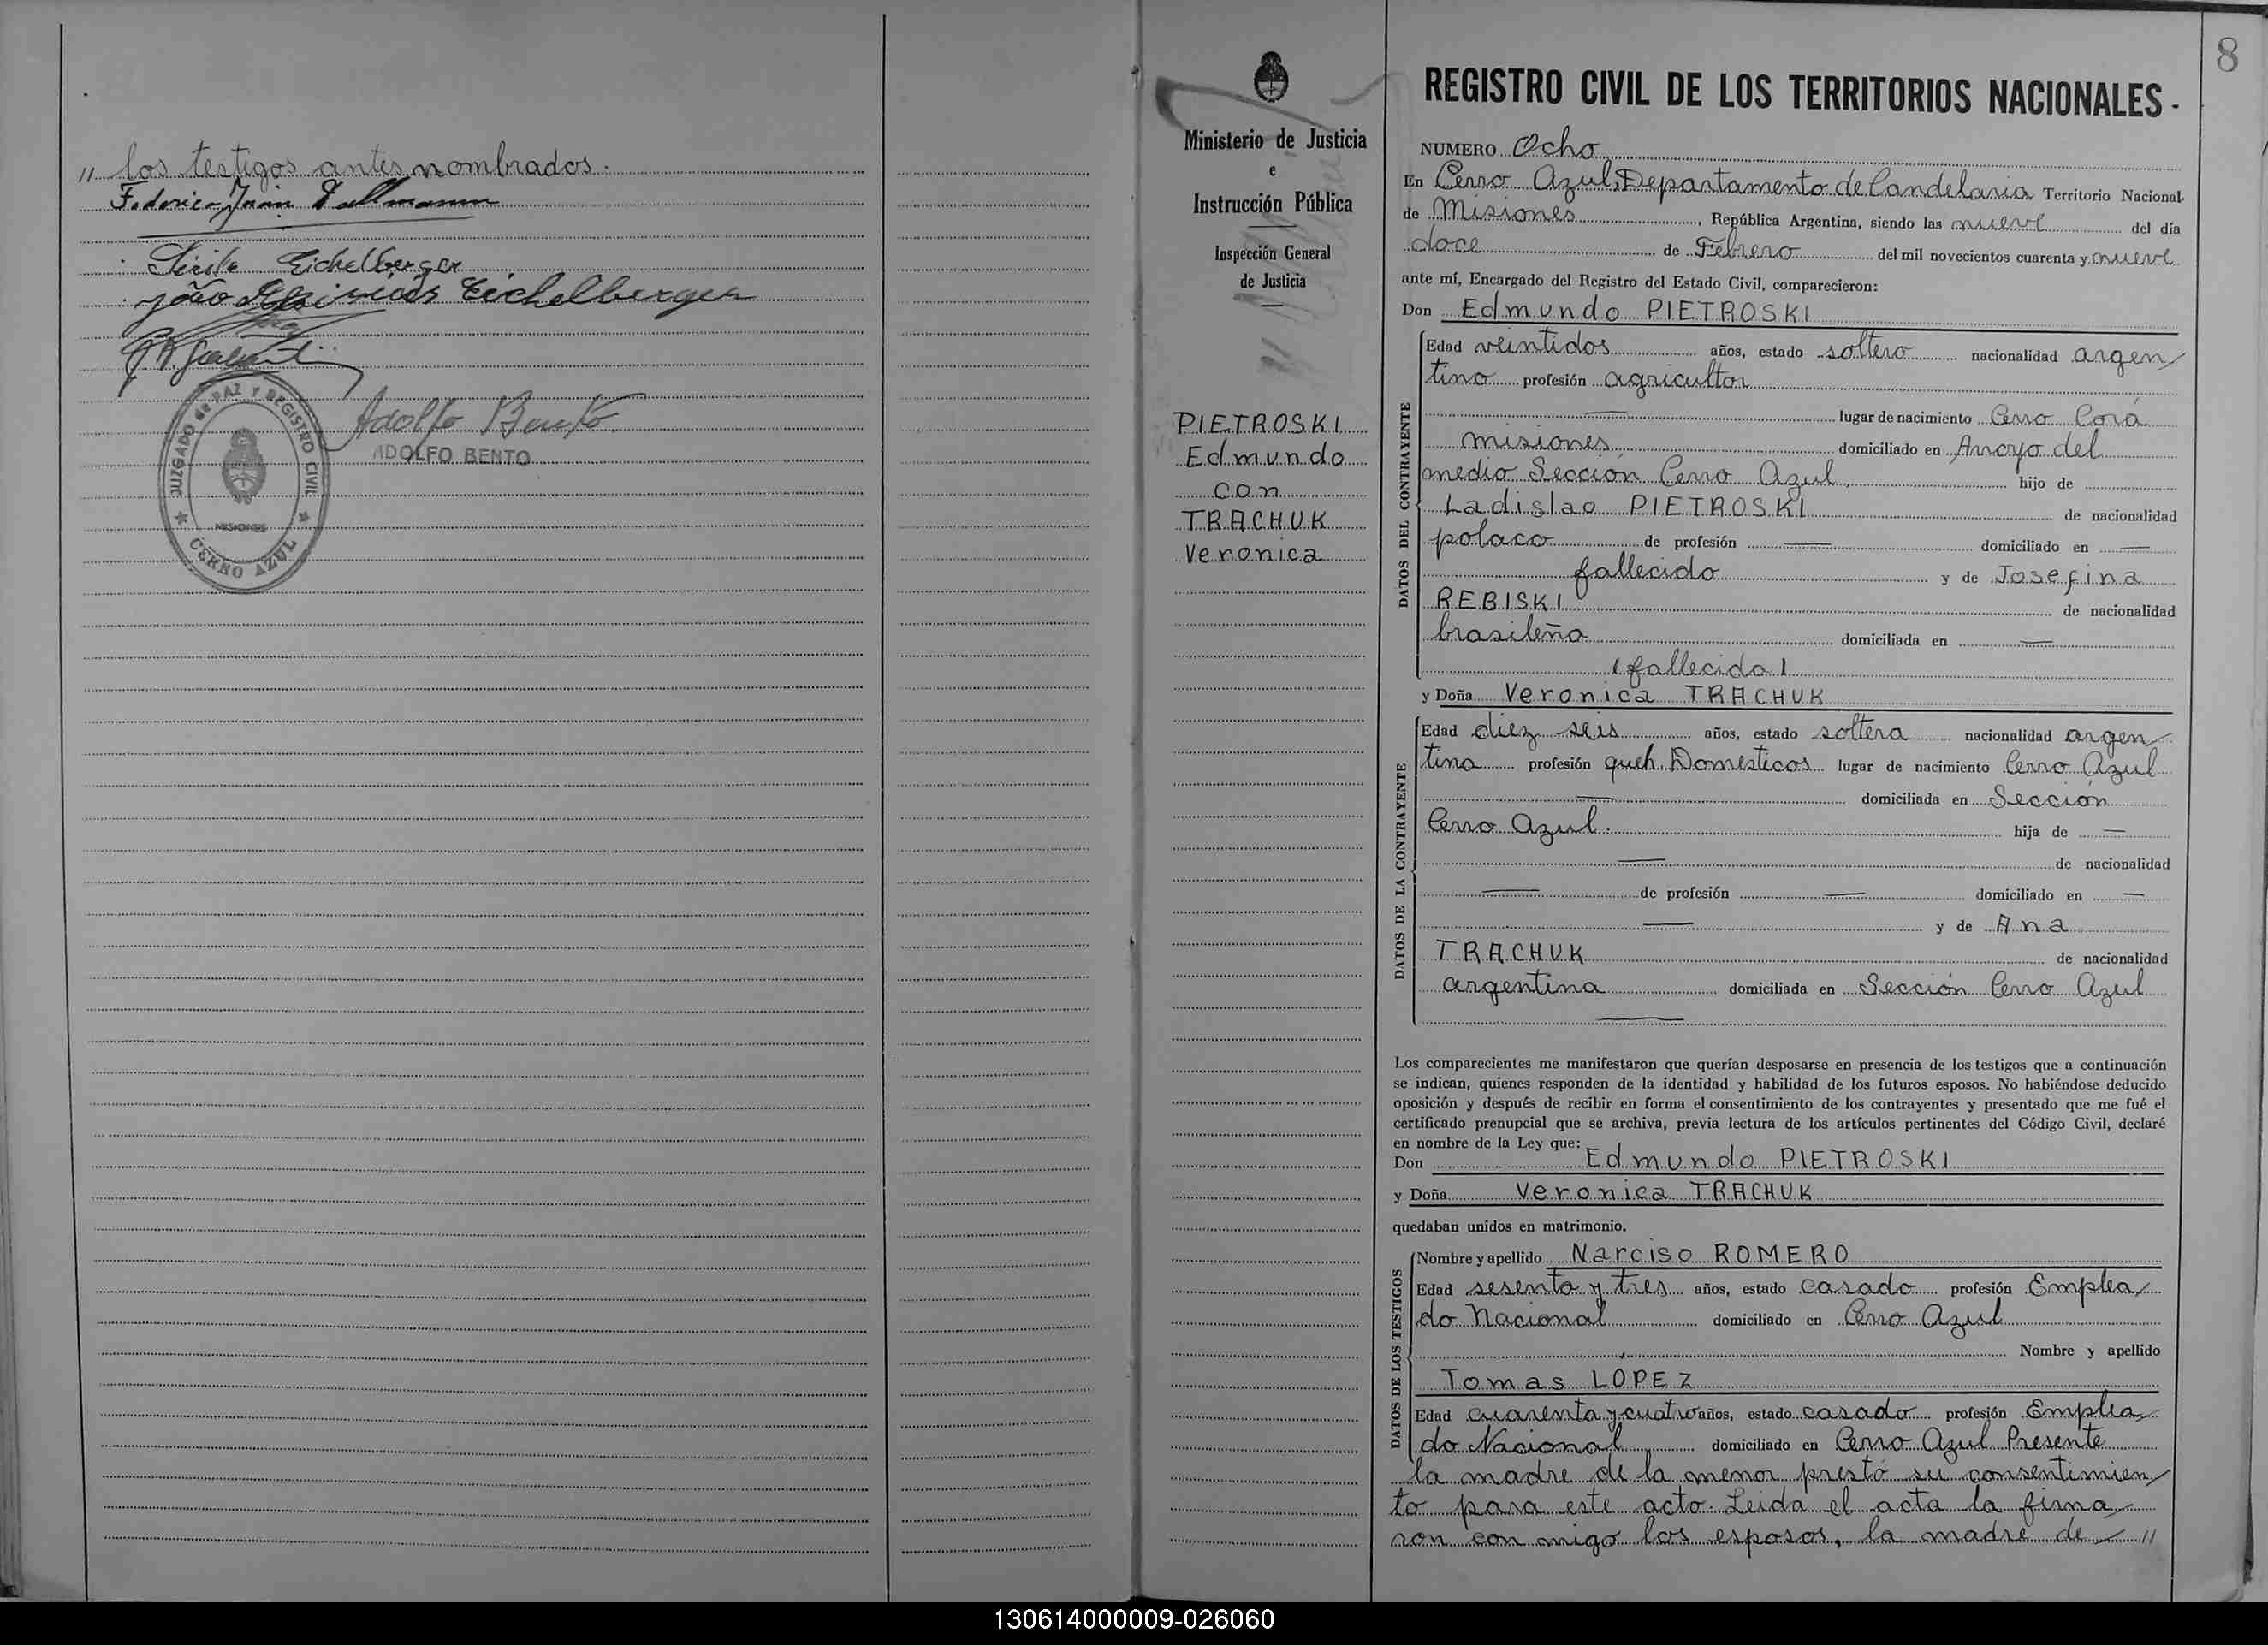 " los testigos antes nombrados.
Federico Juan Dallmann
Eichelberger
João Eichelberger
JUZGADO de PAZ Y REGISTRO CIVIL
MISIONES
CERRO AZUL
Adolfo Bento
ADOLFO BENTO
8
Ministerio de Justicia
e
Instrucción Pública
Inspección General
de Justicia
PIETROSKI
Edmundo
con
TRACHUK
Veronica
REGISTRO CIVIL DE LOS TERRITORIOS NACIONALES.
NUMERO Ocho
En Cerro Azul, Departamento de Candelaria Territorio Nacional
de Misiones, República Argentina, siendo las nueve del día
doce de Febrero del mil novecientos cuarenta y nueve
ante mí, Encargado del Registro del Estado Civil, comparecieron:
Don Edmundo PIETROSKI
DATOS DEL CONTRAYENTE
Edad veintidos años, estado soltero nacionalidad argen
tino profesión agricultor
— lugar de nacimiento Cerro Corá
misiones domiciliado en Arroyo del
medio Sección Cerro Azul hijo de
Ladislao PIETROSKI de nacionalidad
polaco de profesión — domiciliado en —
fallecido y de Josefina
REBISKI de nacionalidad
brasileña domiciliada en —
(fallecida)
y Doña Veronica TRACHUK
DATOS DE LA CONTRAYENTE
Edad diez seis años, estado soltera nacionalidad argen
tina profesión queh. Domesticos lugar de nacimiento Cerro Azul
— domiciliada en Sección
Cerro Azul. hija de —
— de nacionalidad
— de profesión — domiciliado en —
— y de Ana
TRACHUK de nacionalidad
argentina domiciliada en Sección Cerro Azul
—
Los comparecientes me manifestaron que querían desposarse en presencia de los testigos que a continuación
se indican, quienes responden de la identidad y habilidad de los futuros esposos. No habiéndose deducido
oposición y después de recibir en forma el consentimiento de los contrayentes y presentado que me fué el
certificado prenupcial que se archiva, previa lectura de los artículos pertinentes del Código Civil, declaré
en nombre de la Ley que:
Don Edmundo PIETROSKI
y Doña Veronica TRACHUK
quedaban unidos en matrimonio.
DATOS DE LOS TESTIGOS
Nombre y apellido Narciso ROMERO
Edad sesenta y tres años, estado casado profesión Emplea
do Nacional domiciliado en Cerro Azul
Nombre y apellido
Tomas LOPEZ
Edad cuarenta y cuatro años, estado casado profesión Emplea
do Nacional domiciliado en Cerro Azul Presente
la madre de la menor prestó su consentimien
to para este acto. Leida el acta la firma
ron con migo los esposos, la madre de "
130614000009-026060